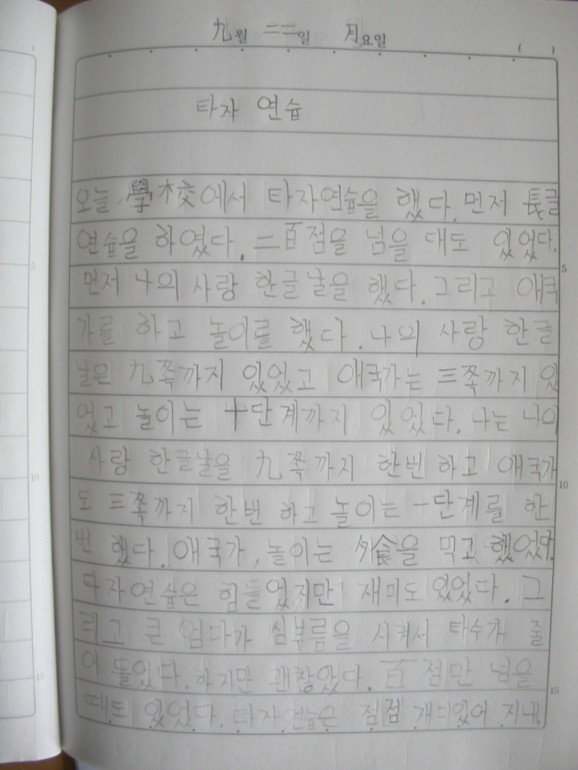 九월 二二일 月요일 ( )
타자 연습
오늘 學校에서 타자연습을 했다. 먼저 長글
연습을 하였다. 二百점을 넘을 대도 있었다.
먼저 나의 사랑 한글날을 했다. 그리고 애국
가를 하고 놀이를 했다. 나의 사랑 한글
날은 九쪽까지 있었고 애국가는 三쪽까지 있
었고 놀이는 十단계까지 있었다. 나는 나의
사랑 한글날을 九쪽까지 한번 하고 애국가
도 三쪽까지 한번 하고 놀이는 一단계를 한
번 했다. 애국가, 놀이는 夕食을 먹고 했었다.
타자연습은 힘들었지만 재미도 있었다. 그
리고 큰 엄마가 심부름을 시켜서 타수가 줄
어 들었다. 하지만 괜찮았다. 百점만 넘을
때도 있었다. 타자연습은 점점 재미있어 지네.
5
10
15
5
10
15